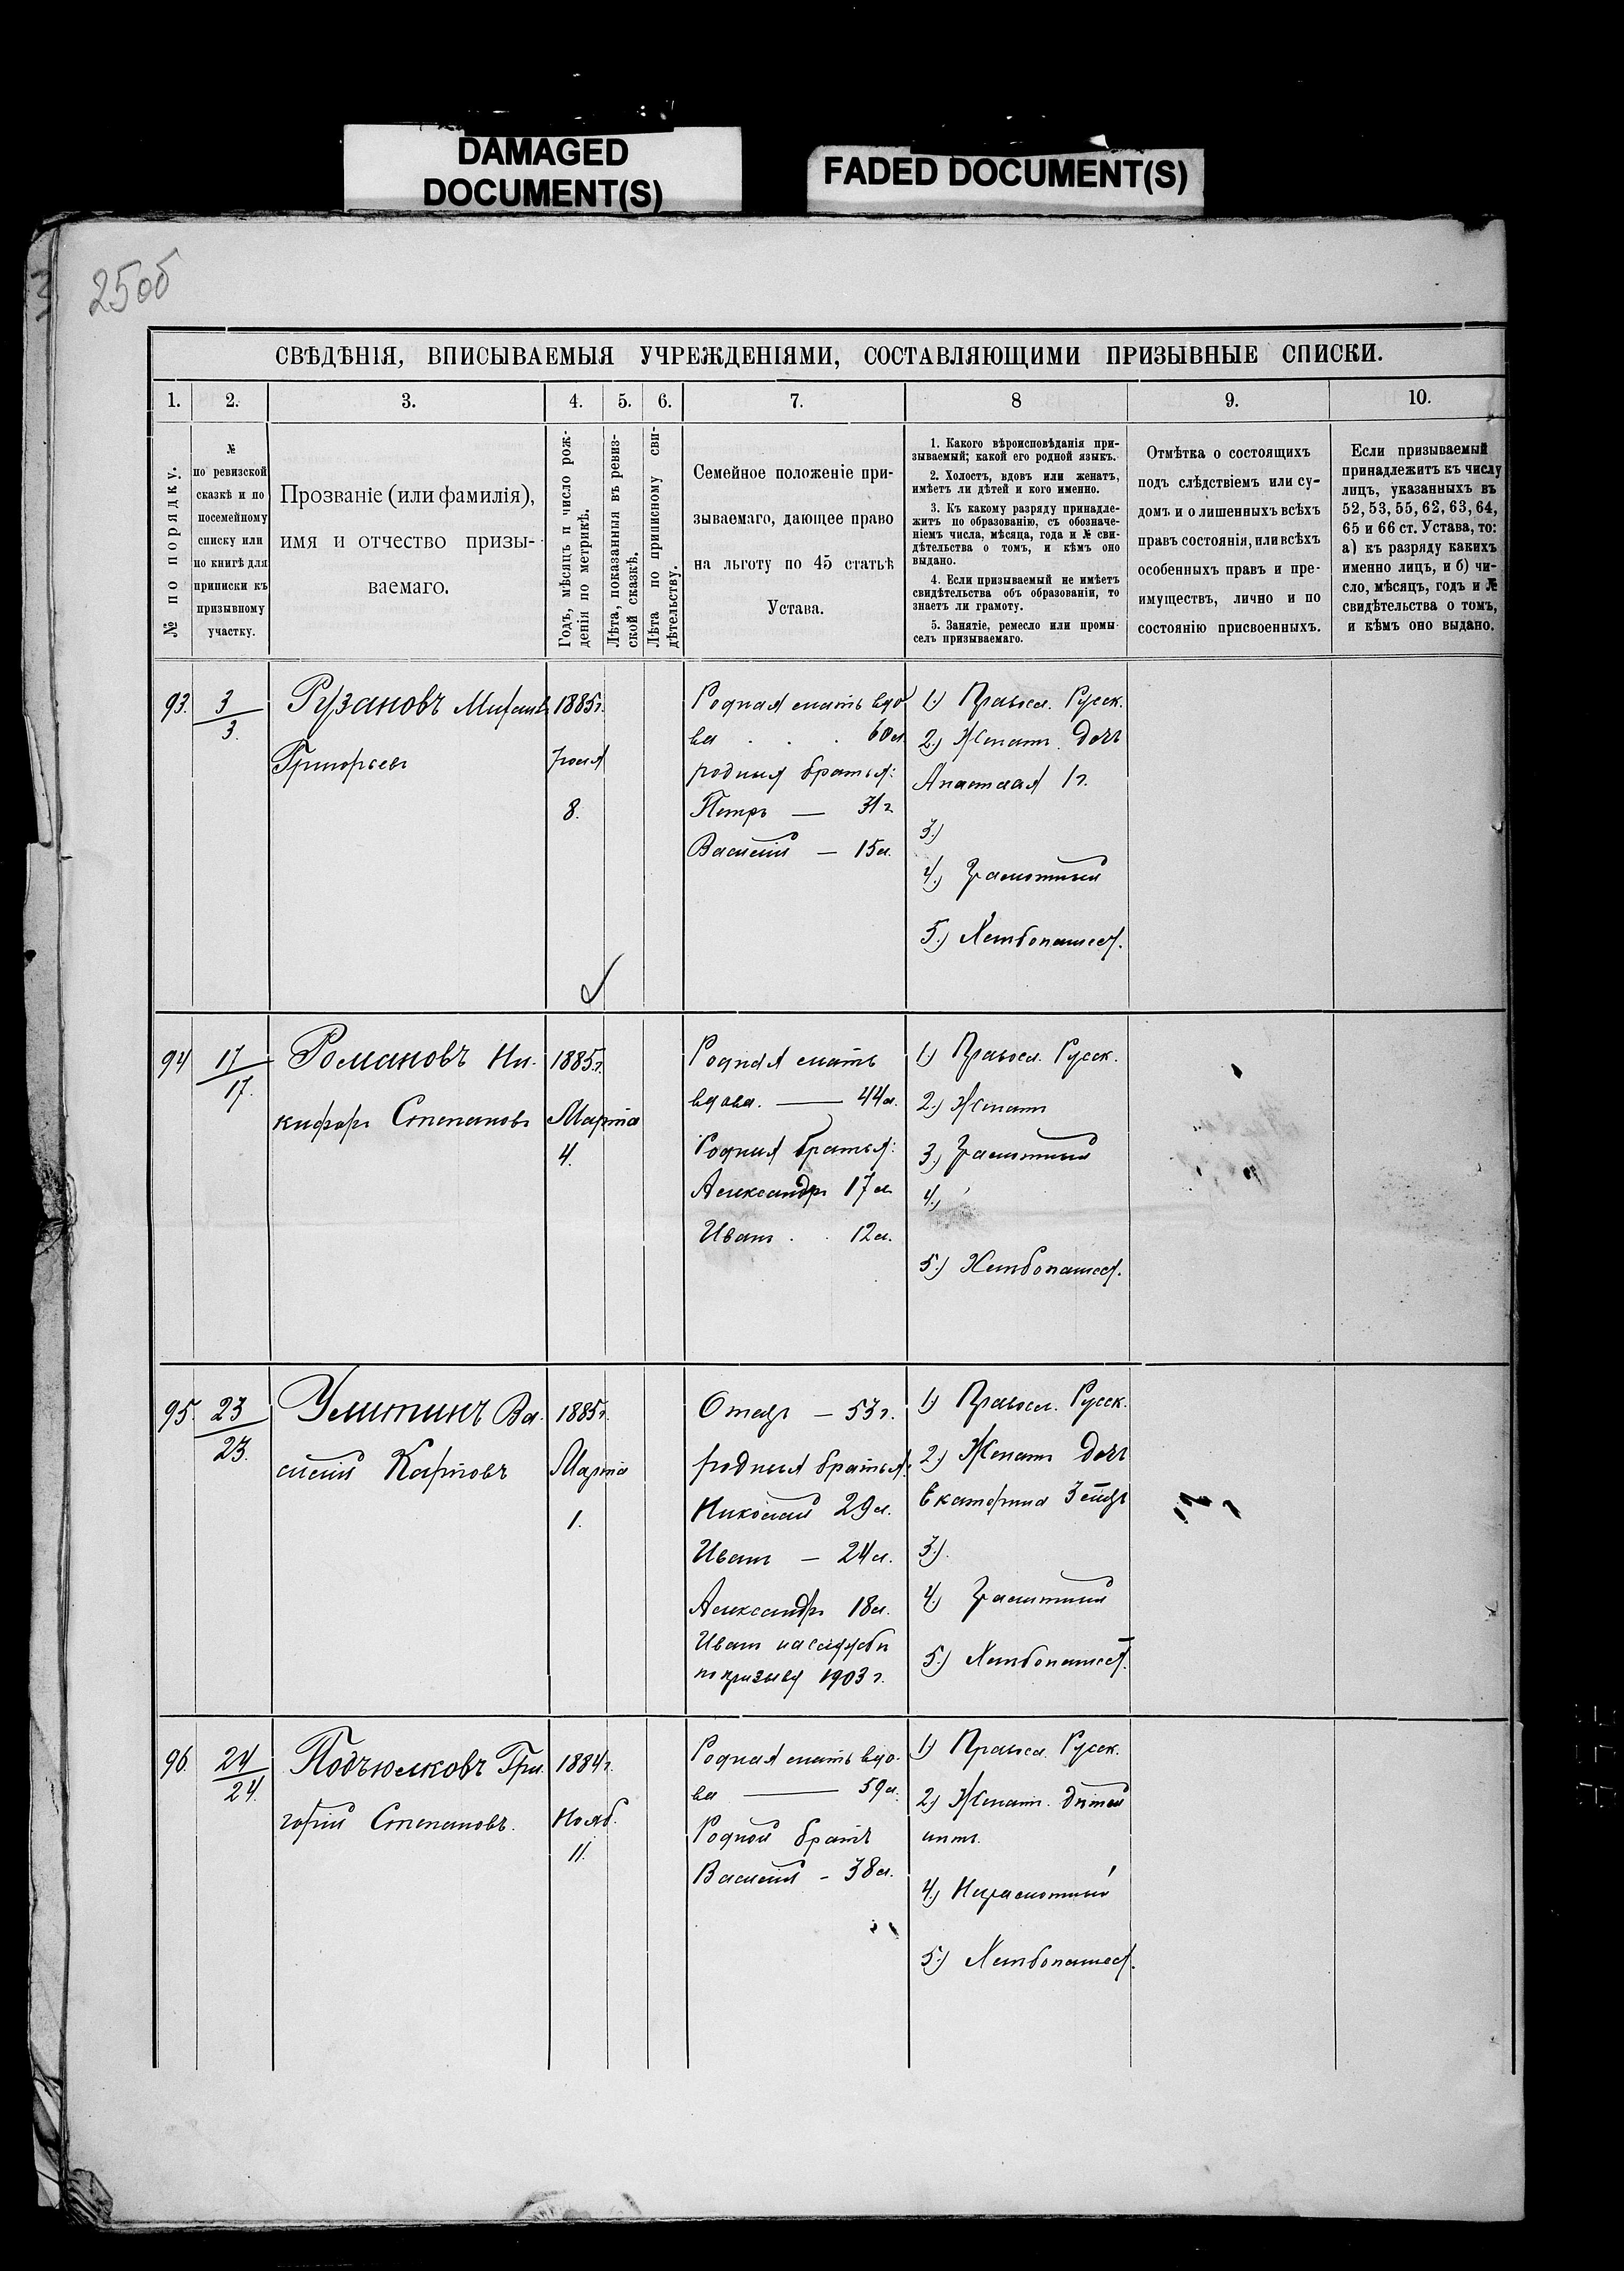 DAMAGED
DOCUMENT(S)
FADED DOCUMENT(S)
25об
СВѢДѢНІЯ, ВПИСЫВАЕМЫЯ УЧРЕЖДЕНІЯМИ, СОСТАВЛЯЮЩИМИ ПРИЗЫВНЫЕ СПИСКИ.
1. 2. 3. 4. 5. 6. 7. 8 9. 10.
№ по порядку.
№
по ревизской
сказкѣ и по
посемейному
списку или
по книгѣ для
приписки къ
призывному
участку.
Прозваніе (или фамилія),
имя и отчество призы-
ваемаго.
Годъ, мѣсяцъ и число рож-
денія по метрикѣ.
Лѣта, показанныя въ ревиз-
ской сказкѣ.
Лѣта по приписному сви-
дѣтельству.
Семейное положеніе при-
зываемаго, дающее право
на льготу по 45 статьѣ
Устава.
1. Какого вѣроисповѣданія при-
зываемый; какой его родной языкъ.
2. Холостъ, вдовъ или женатъ,
имѣетъ ли дѣтей и кого именно.
3. Къ какому разряду принадле-
житъ по образованію, съ обозначе-
ніемъ числа, мѣсяца, года и № сви-
дѣтельства о томъ, и кѣмъ оно
выдано.
4. Если призываемый не имѣетъ
свидѣтельства объ образованіи, то
знаетъ ли грамоту.
5. Занятіе, ремесло или промы-
селъ призываемаго.
Отмѣтка о состоящихъ
подъ слѣдствіемъ или су-
домъ и о лишенныхъ всѣхъ
правъ состоянія, или всѣхъ
особенныхъ правъ и пре-
имуществъ, лично и по
состоянію присвоенныхъ.
Если призываемый
принадлежитъ къ числу
лицъ, указанныхъ въ
52, 53, 55, 62, 63, 64,
65 и 66 ст. Устава, то:
а) къ разряду какихъ
именно лицъ, и б) чи-
сло, мѣсяцъ, годъ и №
свидѣтельства о томъ,
и кѣмъ оно выдано.
93.
3
3.
Рузановъ Михаилъ
Григорьевъ
1885г.
Іюля
8.
Родная мать вдо
ва . . . 60л
родныя братья:
Петръ — 31г
Василій — 15л.
1) Правосл. Русск.
2) Женатъ. дочь
Анастасія 1г.
3)
4) Грамотный
5) Хлѣбопашест.
94
17
17.
Романовъ Ни-
кифоръ Степановъ
1885г.
Марта
4.
Родная мать
вдова. — 44л.
Родныя братья:
Александръ 17л
Иванъ . . 12л.
1) Правосл. Русск.
2) Женатъ
3) Грамотный
4)
5) Хлѣбопашест.
95.
23
23.
Улитинъ Ва-
силій Карповъ
1885г.
Марта
1.
Отецъ — 53г.
родныя братья:
Николай 29л.
Иванъ — 24л.
Александръ 18л.
Иванъ на службѣ
по призыву 1903г.
1) Правосл. Русск.
2) Женатъ дочь
Екатерина 3 мѣсяц
3).
4) Грамотный
5) Хлѣбопашест.
96.
24
24.
Подъюлковъ Гри-
горій Степановъ.
1884г.
Нояб.
11.
Родная мать вдо-
ва — 59л.
Родной братъ
Василій - 38л.
1) Правосл. Русск.
2) Женатъ. дѣтей
нѣтъ.
4) Неграмотный
5) Хлѣбопашест.